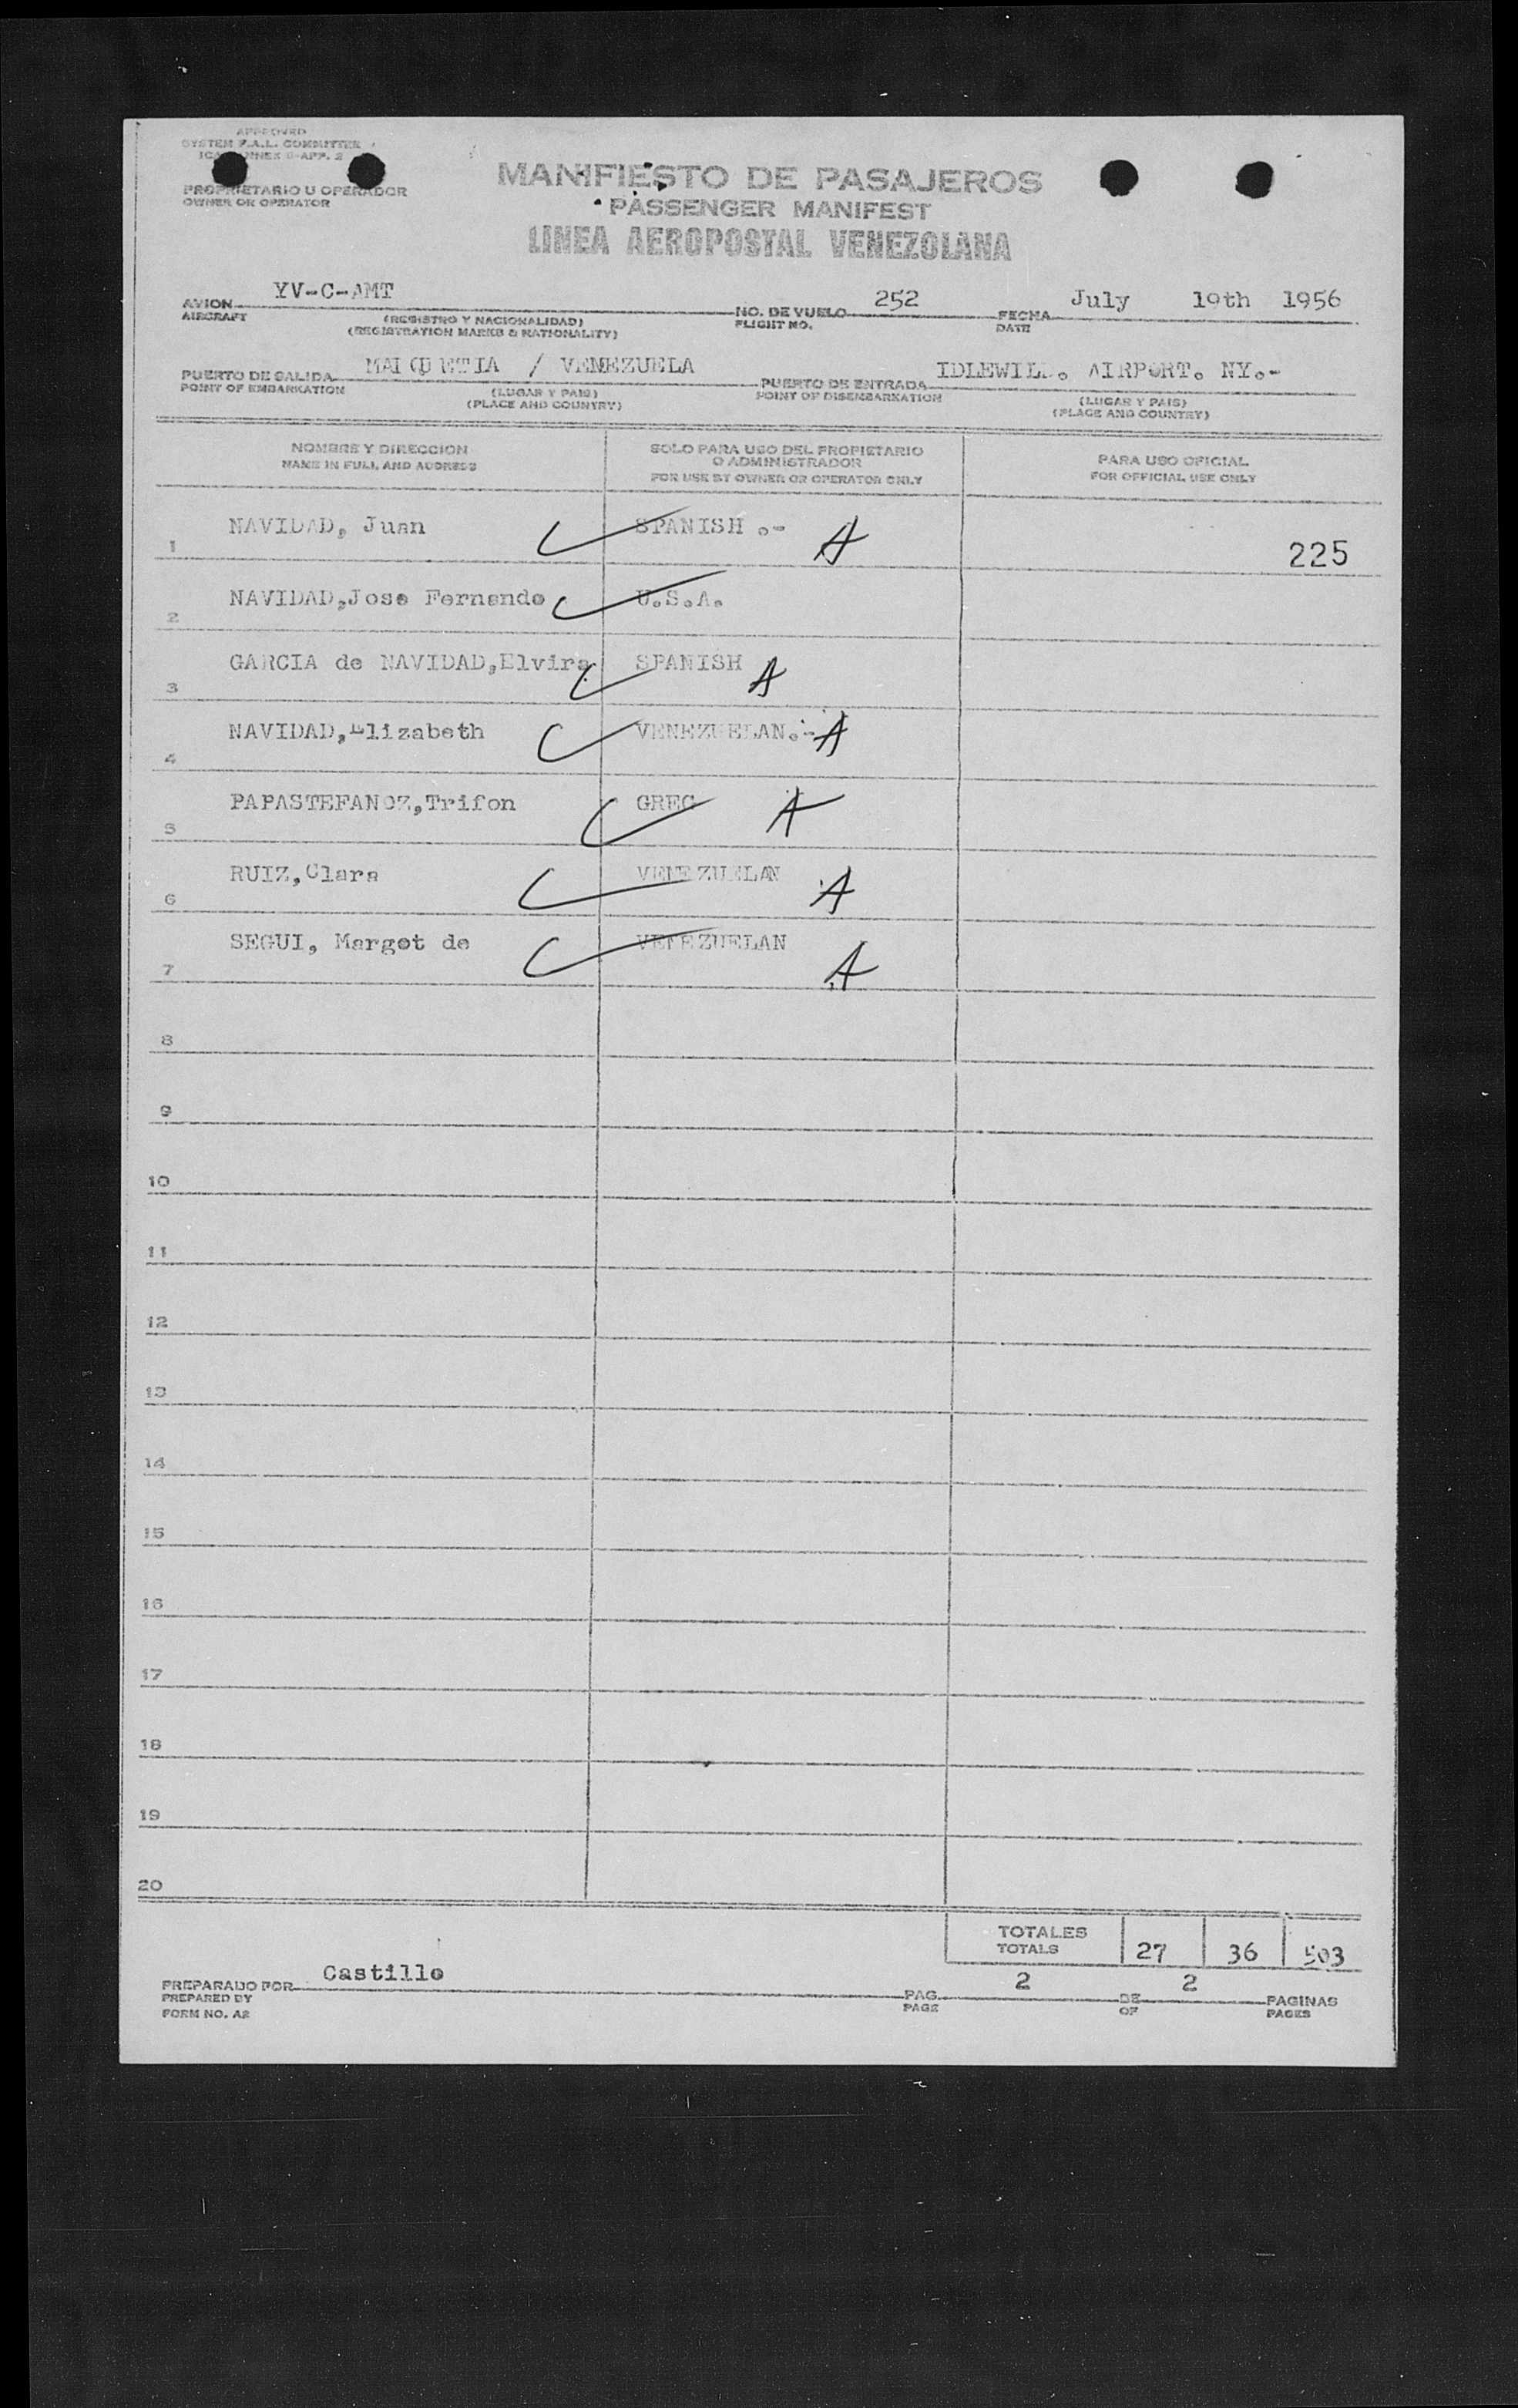 APPROVED
SYSTEM F.A.L. COMMITTEE
PROPRIETARIO U OPERADOR
OWNER OR OPERATOR
MANIFIESTO DE PASAJEROS
PASSENGER MANIFEST
LINEA AEROPOSTAL VENEZOLANA
AVION YV-C-AMT NO. DE VUELO 252 FECHA July 19th 1956
AIRCRAFT (REGISTRO Y NACIONALIDAD) FLIGHT NO. DATE
(REGISTRATION MARKS & NATIONALITY)
PUERTO DE SALIDA MAIQUETIA / VENEZUELA PUERTO DE ENTRADA IDLEWILD. AIRPORT. NY.-
POINT OF EMBARKATION (LUGAR Y PAIS) POINT OF DISEMBARKATION (LUGAR Y PAIS)
(PLACE AND COUNTRY) (PLACE AND COUNTRY)
NOMBRE Y DIRECCION SOLO PARA USO DEL PROPIETARIO O ADMINISTRADOR PARA USO OFICIAL
NAME IN FULL AND ADDRESS FOR USE BY OWNER OR OPERATOR ONLY FOR OFFICIAL USE ONLY
1 NAVIDAD, Juan SPANISH .- A 225
2 NAVIDAD,Jose Fernando U.S.A.
3 GARCIA de NAVIDAD,Elvira SPANISH A
4 NAVIDAD,Elizabeth VENEZUELAN.- A
5 PAPASTEFANOZ,Trifon GREC A
6 RUIZ,Clara VENEZUELAN A
7 SEGUI, Margot de VENEZUELAN A
8
9
10
11
12
13
14
15
16
17
18
19
20
TOTALES
TOTALS 27 36 503
PREPARADO POR Castillo PAG. 2 DE 2 PAGINAS
PREPARED BY PAGE OF PAGES
FORM NO. A2